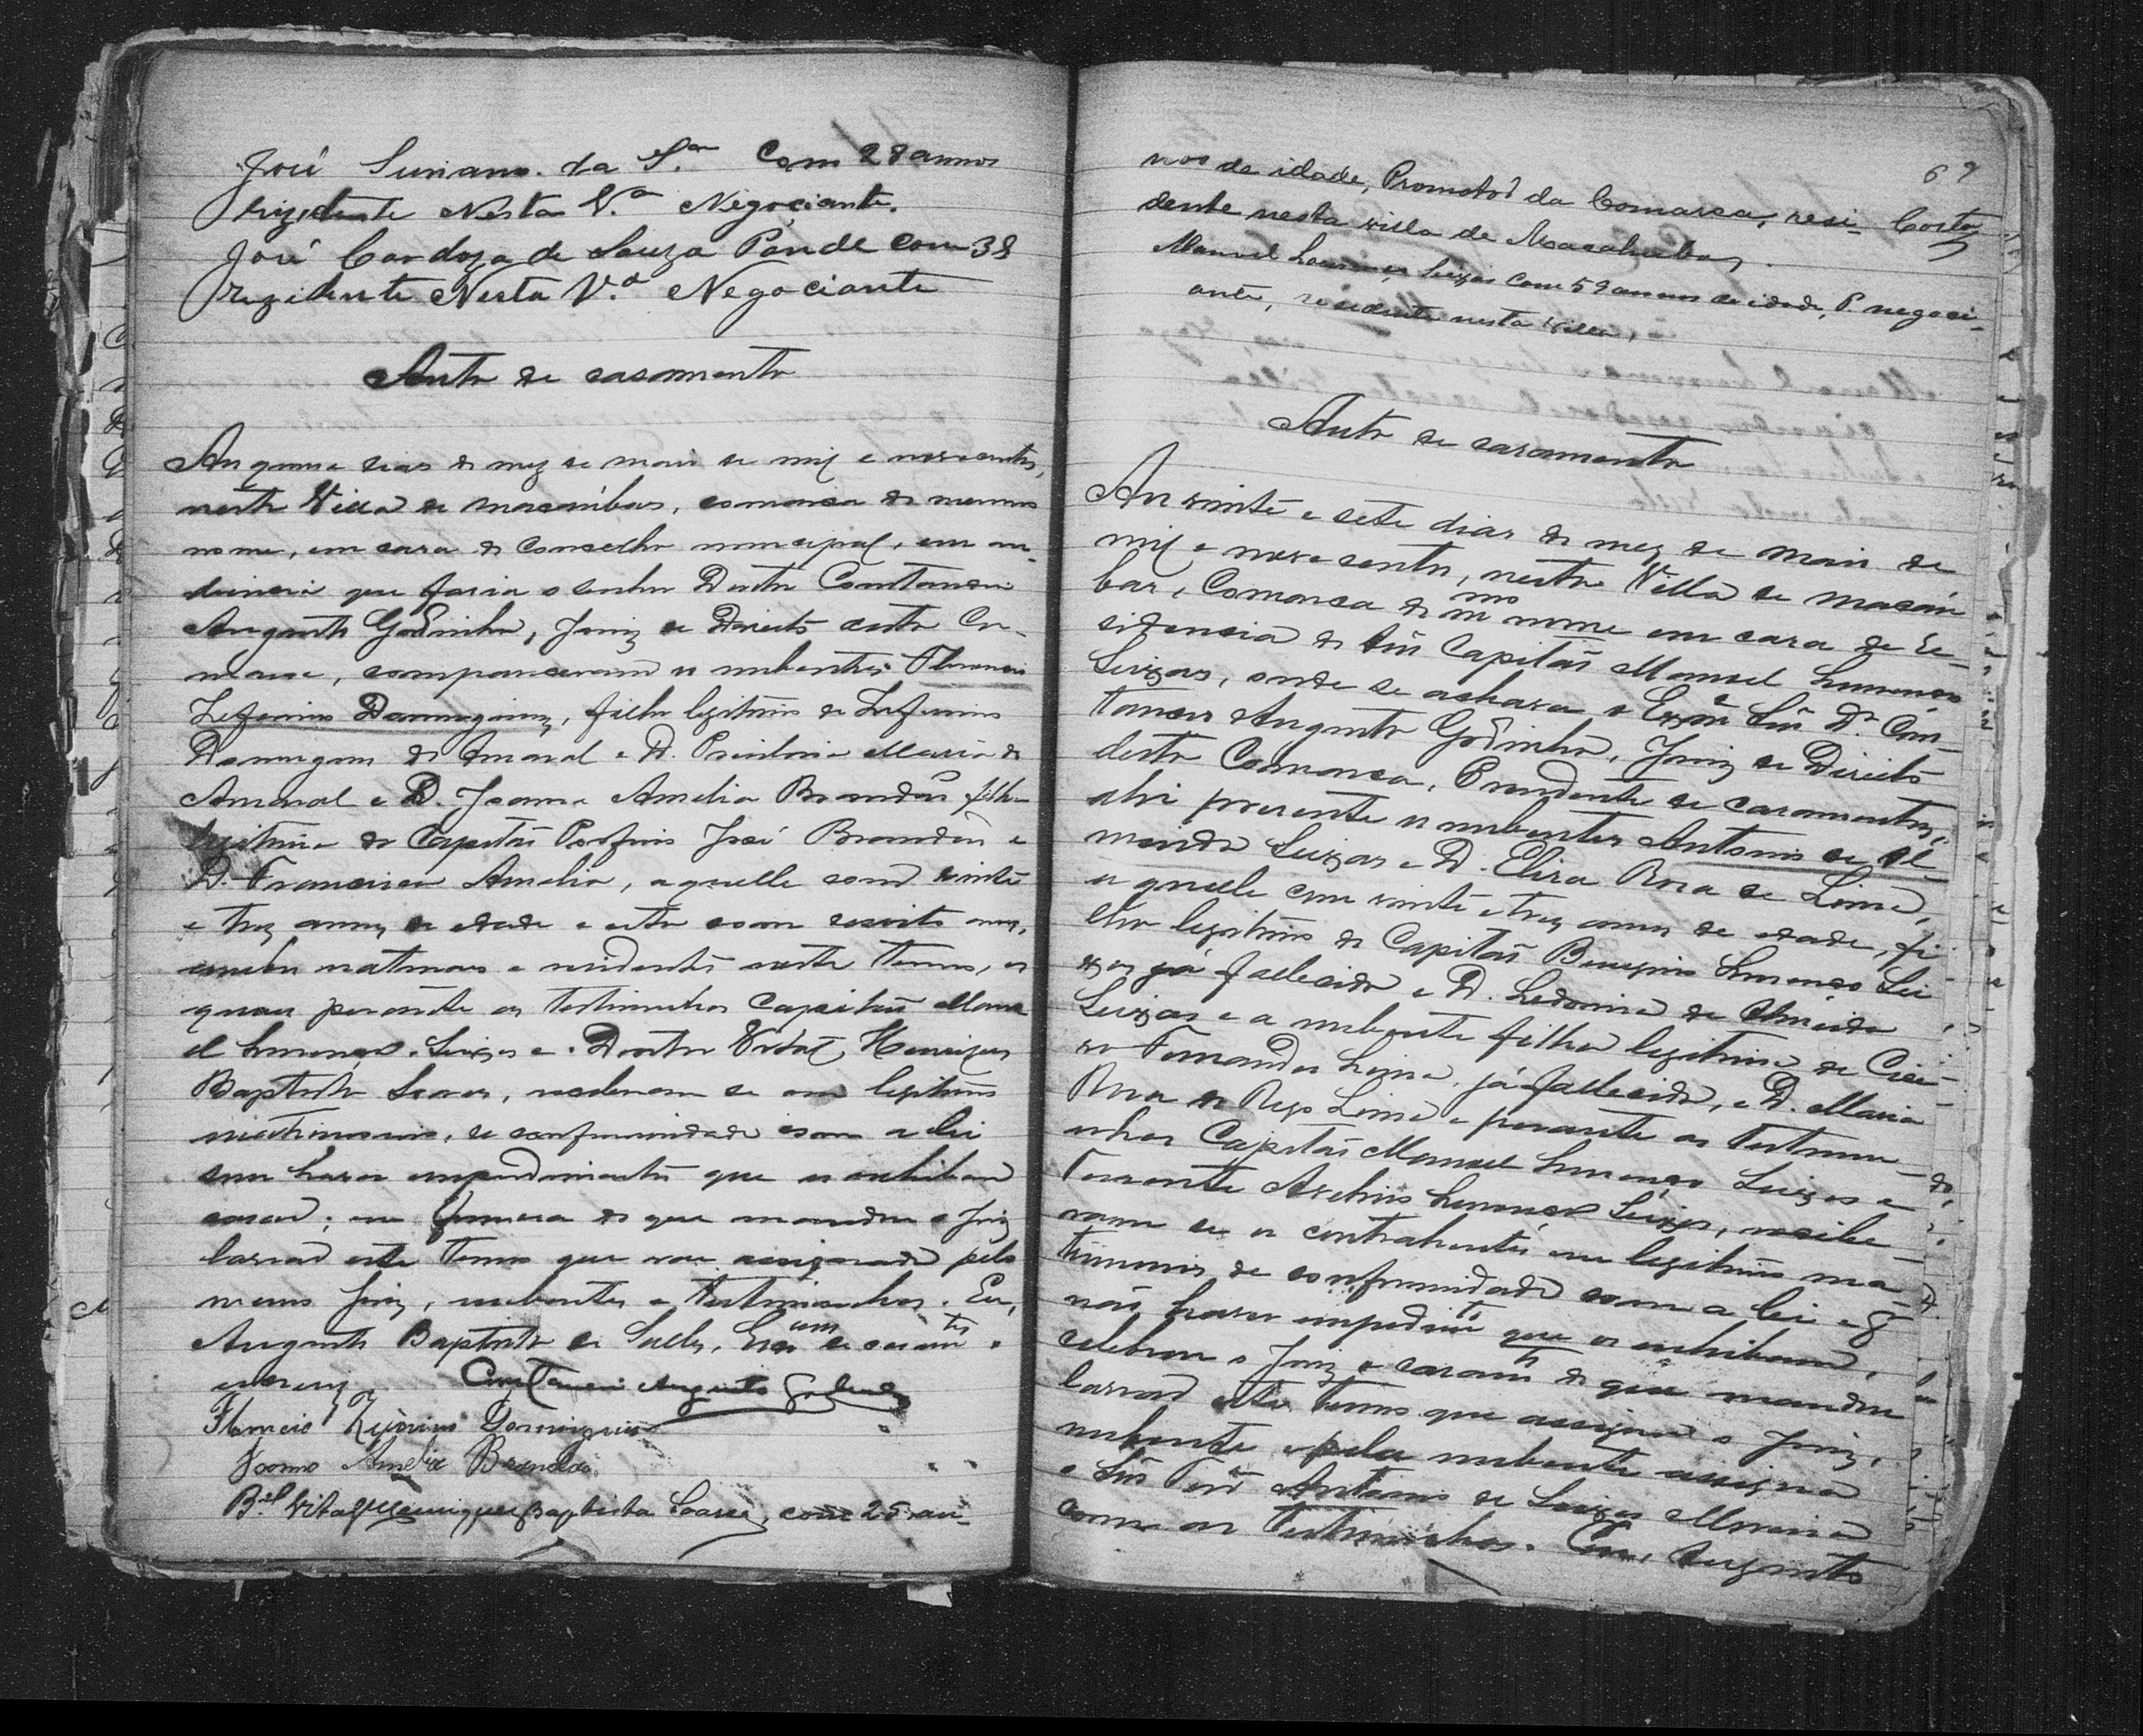 José Suriano da S.ª Com 28 annos
rezidente Nesta V.ª Negociante.
José Cardozo de Souza Ponde com 38
rezidente Nesta V.ª Negociante
Auto de casamento
Aos quinse dias do mez de maio de mil e novecentos,
nesta Villa de Macaúbas, comarca do mesmo
nome, em casa do Conselho municipal, em au-
diencia que fazia o senhor Doutor Constancio
Augusto Godinho, Juiz de Direito desta Co-
marca, compareceram os nubentes Florencio
Zeferino Domingues, filho legitimo de Zeferino
Domingues do Amaral e D. Maria do
Amaral e D. Joanna Amelia Brandão filha
legitima do Capitão Porfirio José Brandão e
D. Francisca Amelia, aquelle com vinte
e trez annos de edade e esta com desoito annos,
ambos naturaes e residentes neste Termo, os
quaes perante as testimunhas Capitão Mano
el Lourenço Seixas e Doutor Vital Henriques
Baptista Soares, receberam se em legitimo
matrimonio, de conformidade com a lei
sem haver impedimentos que os inhibam
casar; em firmeza do que mandou o Juiz
lavrar este Termo que vae assignado pelo
mesmo Juiz, nubentes e testimunhas. Eu,
Augusto Baptista de Salles, Escam de casamtos
escrevy
Constancio Augusto Godinho
Florencio Zeferino Domingues
Joanna Amelia Brandão
B.el Vital Henriques Baptista Soares, com 25 an-
69
nos de idade, Promotor da Comarca, resi-
dente nesta villa de Macahubas.
Costa
Manoel Lourenço Seixas com 59 annos de idade, P. negoci-
ante, residente nesta villa.
Auto de casamento
Aos vinte e sete dias do mez de maio de
mil e novecentos, nesta Villa de Macáu
bas, Comarca do mmo nome em casa de re-
sidencia do Snr Capitão Manoel Lourenço
Seixas, onde se achava o Exmo Snr Dr. Cons-
tancio Augusto Godinho, Juiz de Direito
desta Comarca, Presidente de casamentos,
ahi presente os nubentes Antonio de Al-
meida Seixas e D. Elisa Rosa de Lima,
aquelle com vinte e trez annos de edade, fi
lho legitimo do Capitão Lourenço Sei
xas já fallecido e D. de Almeida
Seixas e a nubente filha legitima de
ro Fernandes Lima, já fallecido, e D. Maria
Rosa do Rego Lima e perante as testimu-
nhas Capitão Manoel Lourenço Seixas e
Tenente Lourenço Seixas, recebe-
ram se os contrahentes em legitimo ma
trimonio de conformidade com a lei e
não haver impedimto que os inhibam,
celebrou o Juiz o casamto do que mandou
lavrar este Termo que assigna o Juiz,
nubente e pela nubente assigna
o Snr Antonio de Seixas Moreira
com as Testimunhas. Eu, Augusto